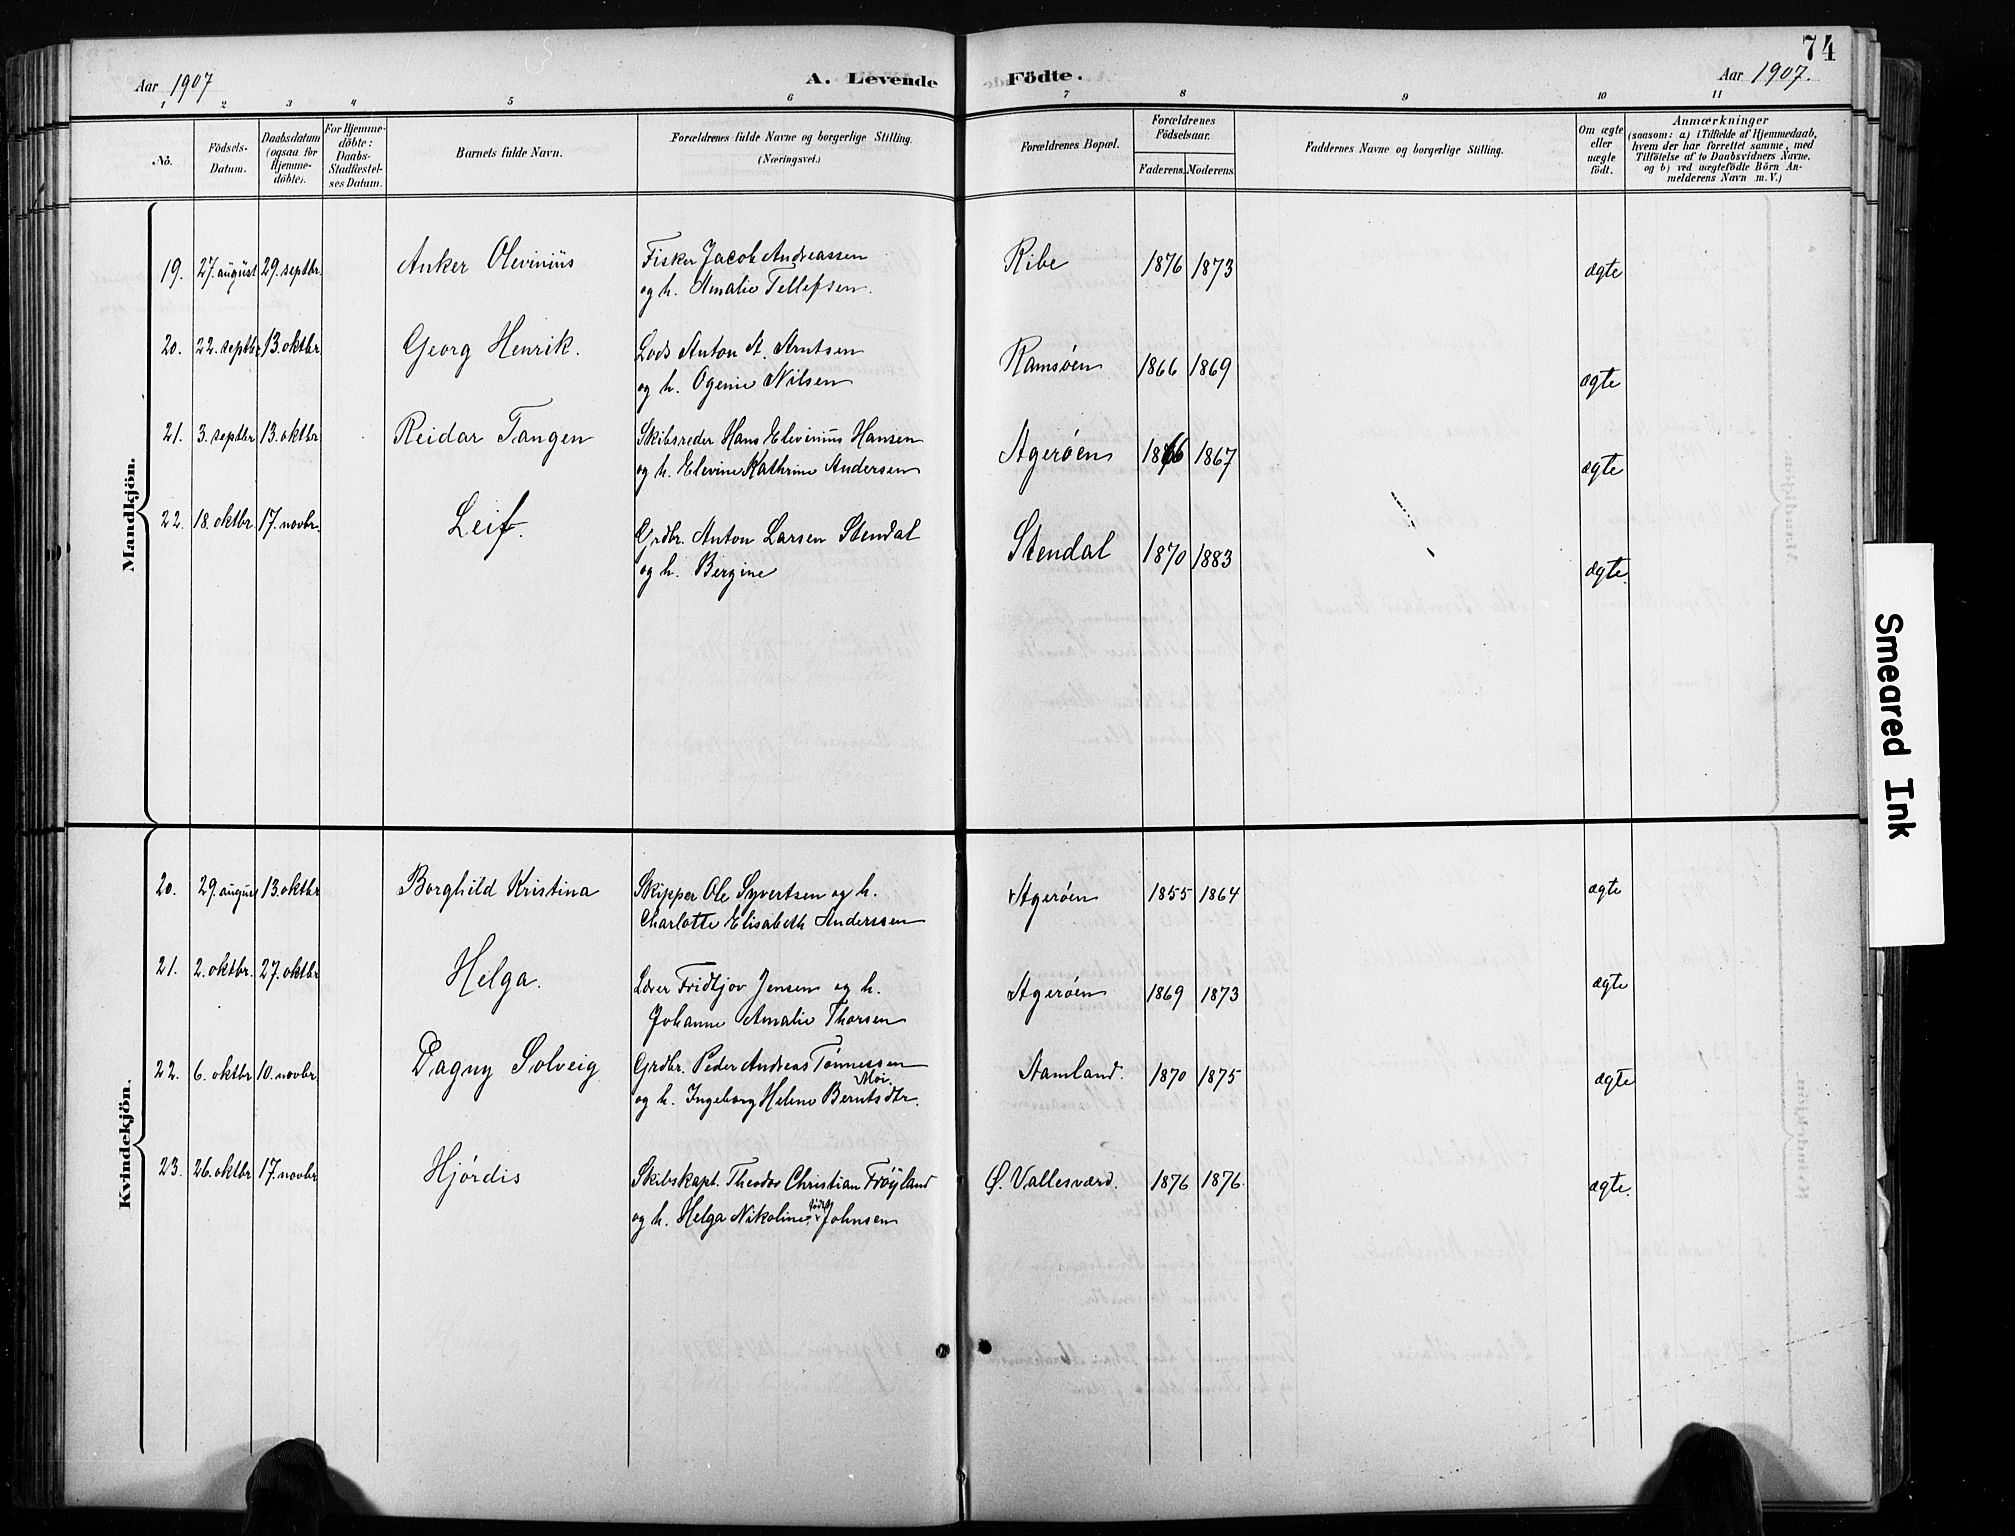 74
Aar 1907
A. Levende
Födte.
Aar 1907.
1 2 3 4 5 6 7 8 9 10 11
No.
Födsels-
Datum.
Daabsdatum
(ogsaa for
Hjemme-
döbte).
For Hjemme-
döbte:
Daabs-
Stadfæstel-
ses Datum.
Barnets fulde Navn.
Forældrenes fulde Navne og borgerlige Stilling.
(Næringsvei.)
Forældrenes Bopæl.
Forældrenes
Födselsaar.
Faderens. Moderens.
Faddernes Navne og borgerlige Stilling.
Om ægte
eller
uægte
födt.
Anmærkninger
(saasom: a) i Tilfælde af Hjemmedaab,
hvem der har forrettet samme, med
Tilföielse af to Daabsvidners Navne,
og b) ved uægtefödte Börn An-
melderens Navn m. V.)
Mandkjön.
19. 27. august 29. septbr. Anker Olevinius Fisker Jacob Andreassen Ribe 1876 1873 ægte
og h. Amalie Tellefsen.
20. 22. septbr 13. oktbr Georg Henrik. Lods Anton A. Arntsen Ramsøen 1866 1869 ægte
og h. Ogenie Nilsen
21. 3. septbr 13. oktbr Reidar Tangen Skibsreder Hans Elevinius Hansen Agerøen 1866 1867 ægte
og h. Elevine Kathrine Andersen
22. 18. oktbr. 17. novbr. Leif. Grdbr. Anton Larsen Stendal Stendal 1870 1883 ægte.
og h. Bergine
Kvindekjön.
20. 29. august 13. oktbr Borghild Kristina Skipper Ole Syvertsen og h. Agerøen 1855 1864 ægte
Charlotte Elisabeth Anderssen
21. 2. oktbr. 27. oktbr Helga. Lærer Fridtjov Jensen og h. Agerøen 1869 1873 ægte
Johanne Amalie Thorsen
22. 6. oktbr 10. novbr. Dagny Solveig Grdbr. Peder Andreas Tønnessen Aamland. 1870 1875 ægte
Moi.
og h. Ingeborg Helene Berntsdtr.
23. 26. oktbr 17. novbr Hjørdis Skibskapt. Theodor Christian Frøyland Ø. Vallesværd. 1876 1876. ægte.
født
og h. Helga Nikoline Johnsen
Smeared Ink